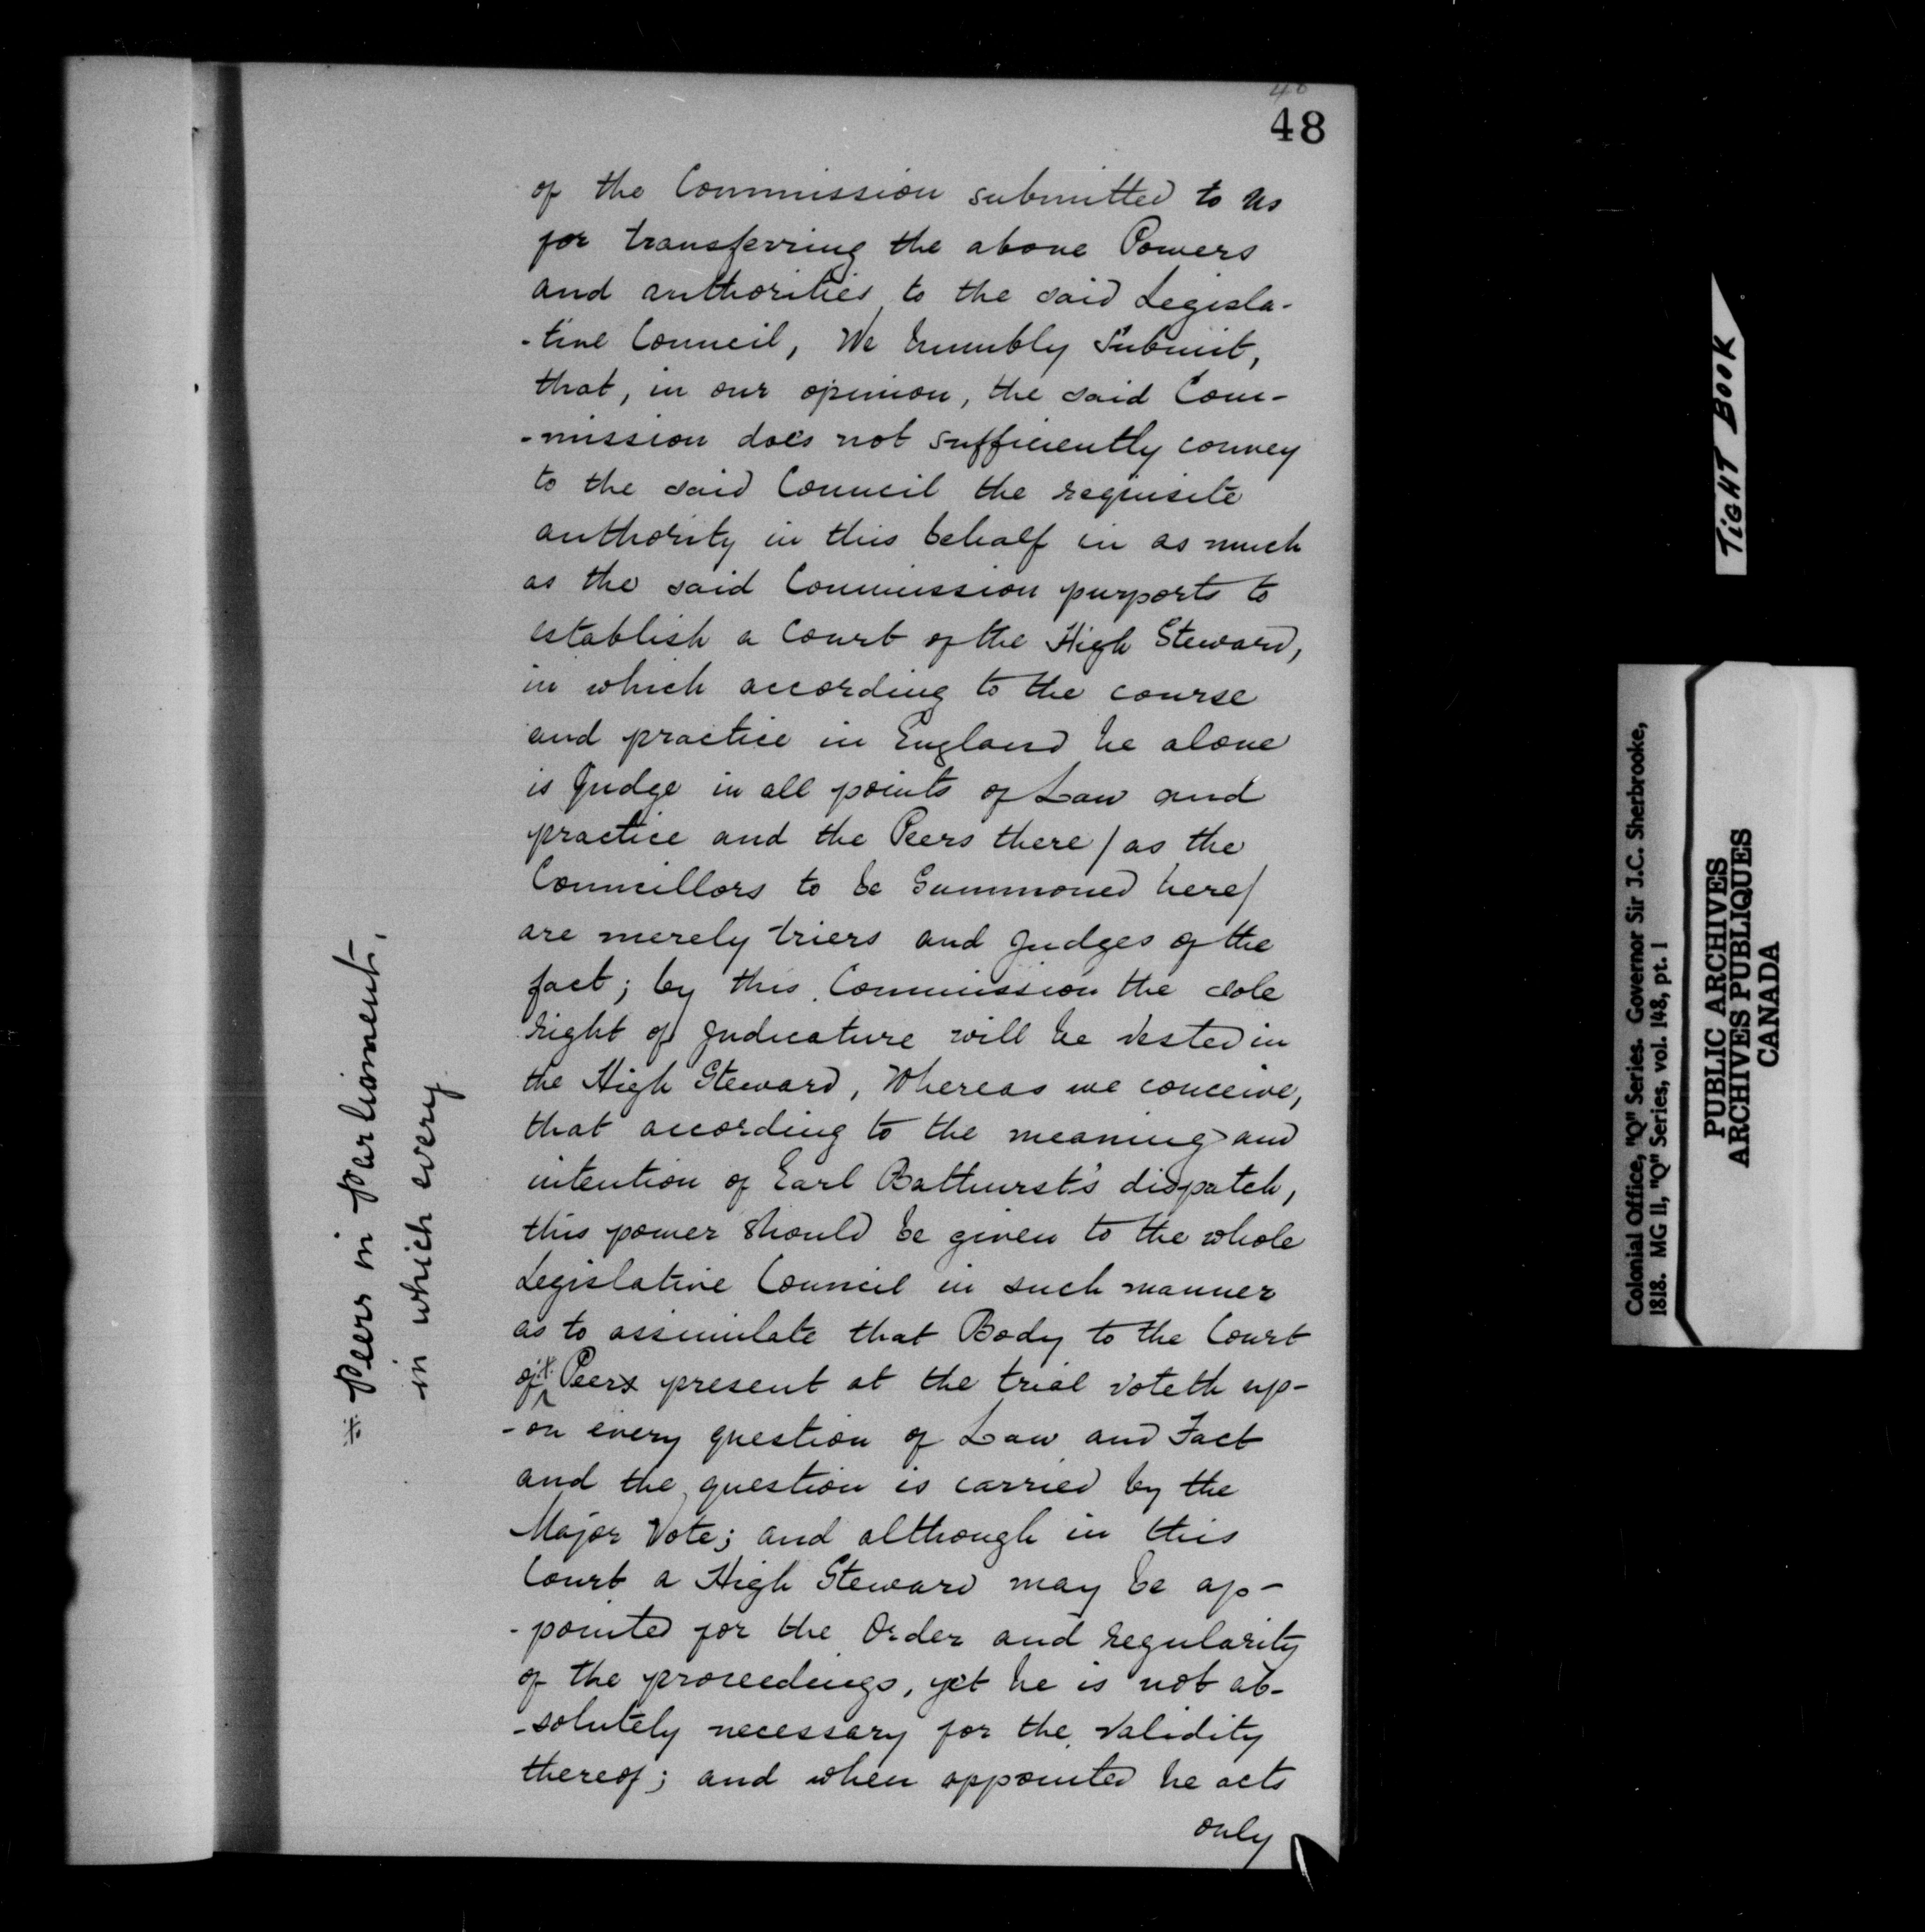 48
of the Commission submitted to us
for transferring the above Powers
and authorities to the said Legisla-
-tive Council, We humbly Submit,
that, in our opinion, the said Com-
-mission does not sufficiently convey
to the said Council the requisite
authority in this behalf in as much
as the said Commission purports to
establish a Court of the High Steward,
in which according to the course
and practice in England he alone
is Judge in all points of Law and
practice and the Peers there / as the
Councillors to be Summoned here /
are merely triers and Judges of the
fact; by this Commission the sole
right of Judicature will be vested in
the High Steward, Whereas we conceive,
that according to the meaning and
intention of Earl Bathurst's dispatch,
this power should be given to the whole
Legislative Council in such manner
as to assimilate that Body to the Court
of * Peers present at the trial voteth up-
-on every question of Law and Fact
and the question is carried by the
Major Vote; and although in this
Court a High Steward may be ap-
-pointed for the Order and regularity
of the proceedings, yet he is not ab-
-solutely necessary for the validity
thereof; and when appointed he acts
only
* Peers in Parliament,
in which every
TIGHT BOOK
Colonial Office, "Q" Series. Governor Sir J.C. Sherbrooke,
1818. MG 11, "Q" Series, vol. 148, pt. 1
PUBLIC ARCHIVES
ARCHIVES PUBLIQUES
CANADA